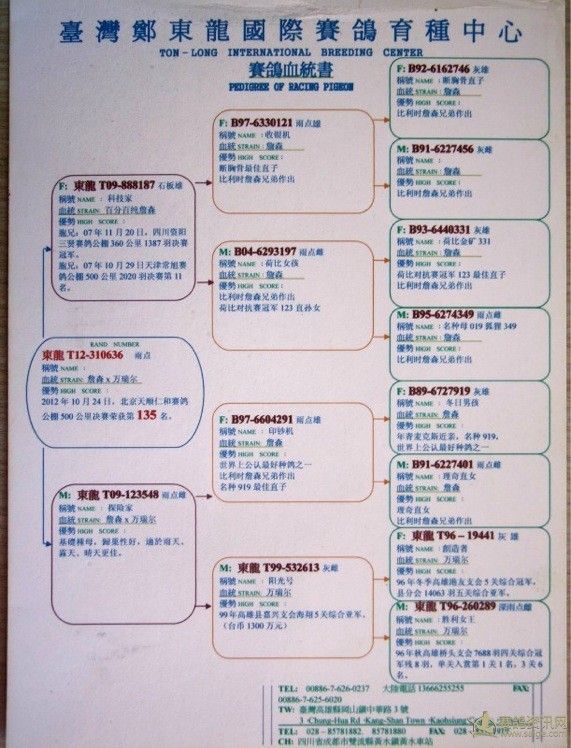 臺灣鄭東龍國際賽鴿育種中心
TON-LONG INTERNATIONAL BREEDING CENTER
賽鴿血統書
PEDIGREE OF RACING PIGEON
RAND NUMBER
東龍 T12-310636 雨点
稱號 NAME :
血統 STRAIN: 詹森 x 万瑞尔
優勢 HIGH SCORE:
2012 年 10 月 24 日，北京天顺仁和赛鸽
公棚 500 公里决赛荣获第 135 名。
F: 東龍 T09-888187 石板雄
稱號 NAME : 科技家
血統 STRAIN: 百分百纯詹森
優勢 HIGH SCORE:
龍兄：07 年 11 月 20 日，四川资阳
三贤赛鸽公棚 360 公里 1387 羽决赛
冠军。
龍兄：07 年 10 月 29 日天津常旭赛
鸽公棚 500 公里 2020 羽决赛第 11
名。
M: 東龍 T09-123548 雨点雌
稱號 NAME : 探險家
血統 STRAIN: 詹森 x 万瑞尔
優勢 HIGH SCORE:
基礎種母，歸巢性好，適於雨天、
露天、晴天更佳。
F: B97-6330121 雨点雄
稱號 NAME : 收银机
血統 STRAIN: 詹森
優勢 HIGH SCORE:
断胸骨最佳直子
比利时詹森兄弟作出
M: B04-6293197 雨点雌
稱號 NAME : 荷比女孩
血統 STRAIN: 詹森
優勢 HIGH SCORE:
比利时詹森兄弟作出
荷比对抗赛冠军 123 直孙女
F: B97-6604291 雨点雄
稱號 NAME : 印钞机
血統 STRAIN: 詹森
優勢 HIGH SCORE:
世界上公认最好种鸽之一
比利时詹森兄弟作出
名种 919 最佳直子
M: 東龍 T99-532613 灰雌
稱號 NAME : 阳光号
血統 STRAIN: 万瑞尔
優勢 HIGH SCORE:
99 年高雄县嘉兴支会海翔 5 关综合亚军。
（台币 1300 万元）
F: B92-6162746 灰雄
稱號 NAME : 断胸骨直子
血統 STRAIN: 詹森
優勢 HIGH SCORE:
比利时詹森兄弟作出
M: B91-6227456 灰雌
稱號 NAME :
血統 STRAIN: 詹森
優勢 HIGH SCORE:
比利时詹森兄弟作出
F: B93-6440331 灰雄
稱號 NAME : 荷比金矿 331
血統 STRAIN: 詹森
優勢 HIGH SCORE:
荷比对抗赛冠军 123 最佳直子
比利时詹森兄弟作出
M: B95-6274349 雨点雌
稱號 NAME : 名种母 019 狐狸 349
血統 STRAIN: 詹森
優勢 HIGH SCORE:
比利时詹森兄弟作出
F: B89-6727919 灰雄
稱號 NAME : 冬日男孩
血統 STRAIN: 詹森
優勢 HIGH SCORE:
年青麦克斯近亲，名种 919，
世界上公认最好种鸽之一
M: B91-6227401 雨点雌
稱號 NAME : 理奇直女
血統 STRAIN: 詹森
優勢 HIGH SCORE:
理奇直女
比利时詹森兄弟作出
F: 東龍 T96-19441 灰 雄
稱號 NAME : 創造者
血統 STRAIN: 万瑞尔
優勢 HIGH SCORE:
96 年冬季高雄港友支会 5 关综合冠军，
县分会 14063 羽五关综合亚军。
M: 東龍 T96-260289 深雨点雌
稱號 NAME : 胜利女王
血統 STRAIN: 万瑞尔
優勢 HIGH SCORE:
96 年秋高雄桥头支会 7688 羽四关综合冠
军残 8 羽，单关入赏第 1 关 1 名，3 关 6
名。
TEL: 00886-7-626-0237 大陸電話 13666255255 FAX:
00886-7-625-6020
TW: 臺灣高雄縣岡山鎮中華路 3 號
3 Chung-Hua Rd Kang-Shan Town Kaohsiung
TEL: 028-85781882 85781880 FAX: 028
CH: 四川省成都市雙流縣黃水鎮黃水車站